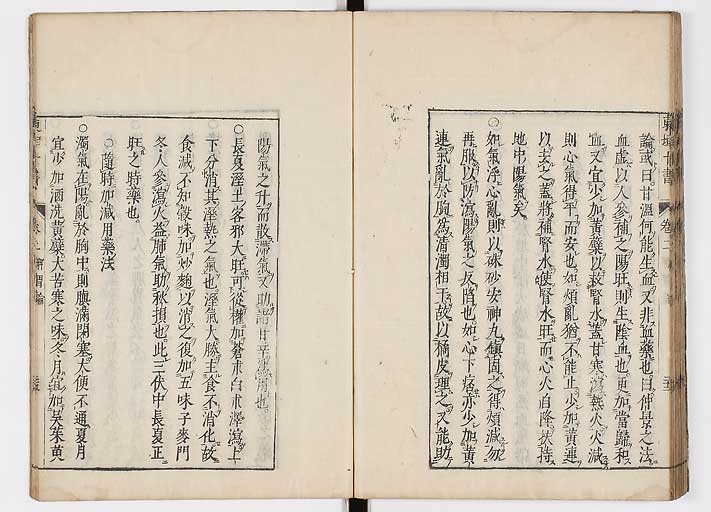 論或曰甘溫何能生血又非血藥也曰仲景之法
血虛以人參補之陽旺則生陰血也更加當歸和
血又宜少加黃蘗以救腎水蓋甘寒瀉熱火火減
則心氣得平而安也如煩亂猶不能止少加黃連
以去之蓋將補腎水使腎水旺而心火自降扶持
地中陽氣矣
○如氣浮心亂則以硃砂安神丸鎮固之得煩減勿
再服以防瀉陽氣之反陷也如心下痞亦少加黃
連氣亂於胸為清濁相干故以橘皮理之又能助
陽氣之升而散滯氣又助諸甘辛為用也
○長夏溼土客邪大旺可從權加蒼朮白朮澤瀉上
下分消其溼熱之氣也溼氣大勝主食不消化故
食減不知穀味加炒麴以消之復加五味子麥門
冬人參瀉火益肺氣助秋損也此三伏中長夏正
旺之時藥也
○隨時加減用藥法
○濁氣在陽亂於胸中則䐜滿閉塞大便不通夏月
宜少加酒洗黃蘗大苦寒之味冬月宜加吳茱萸